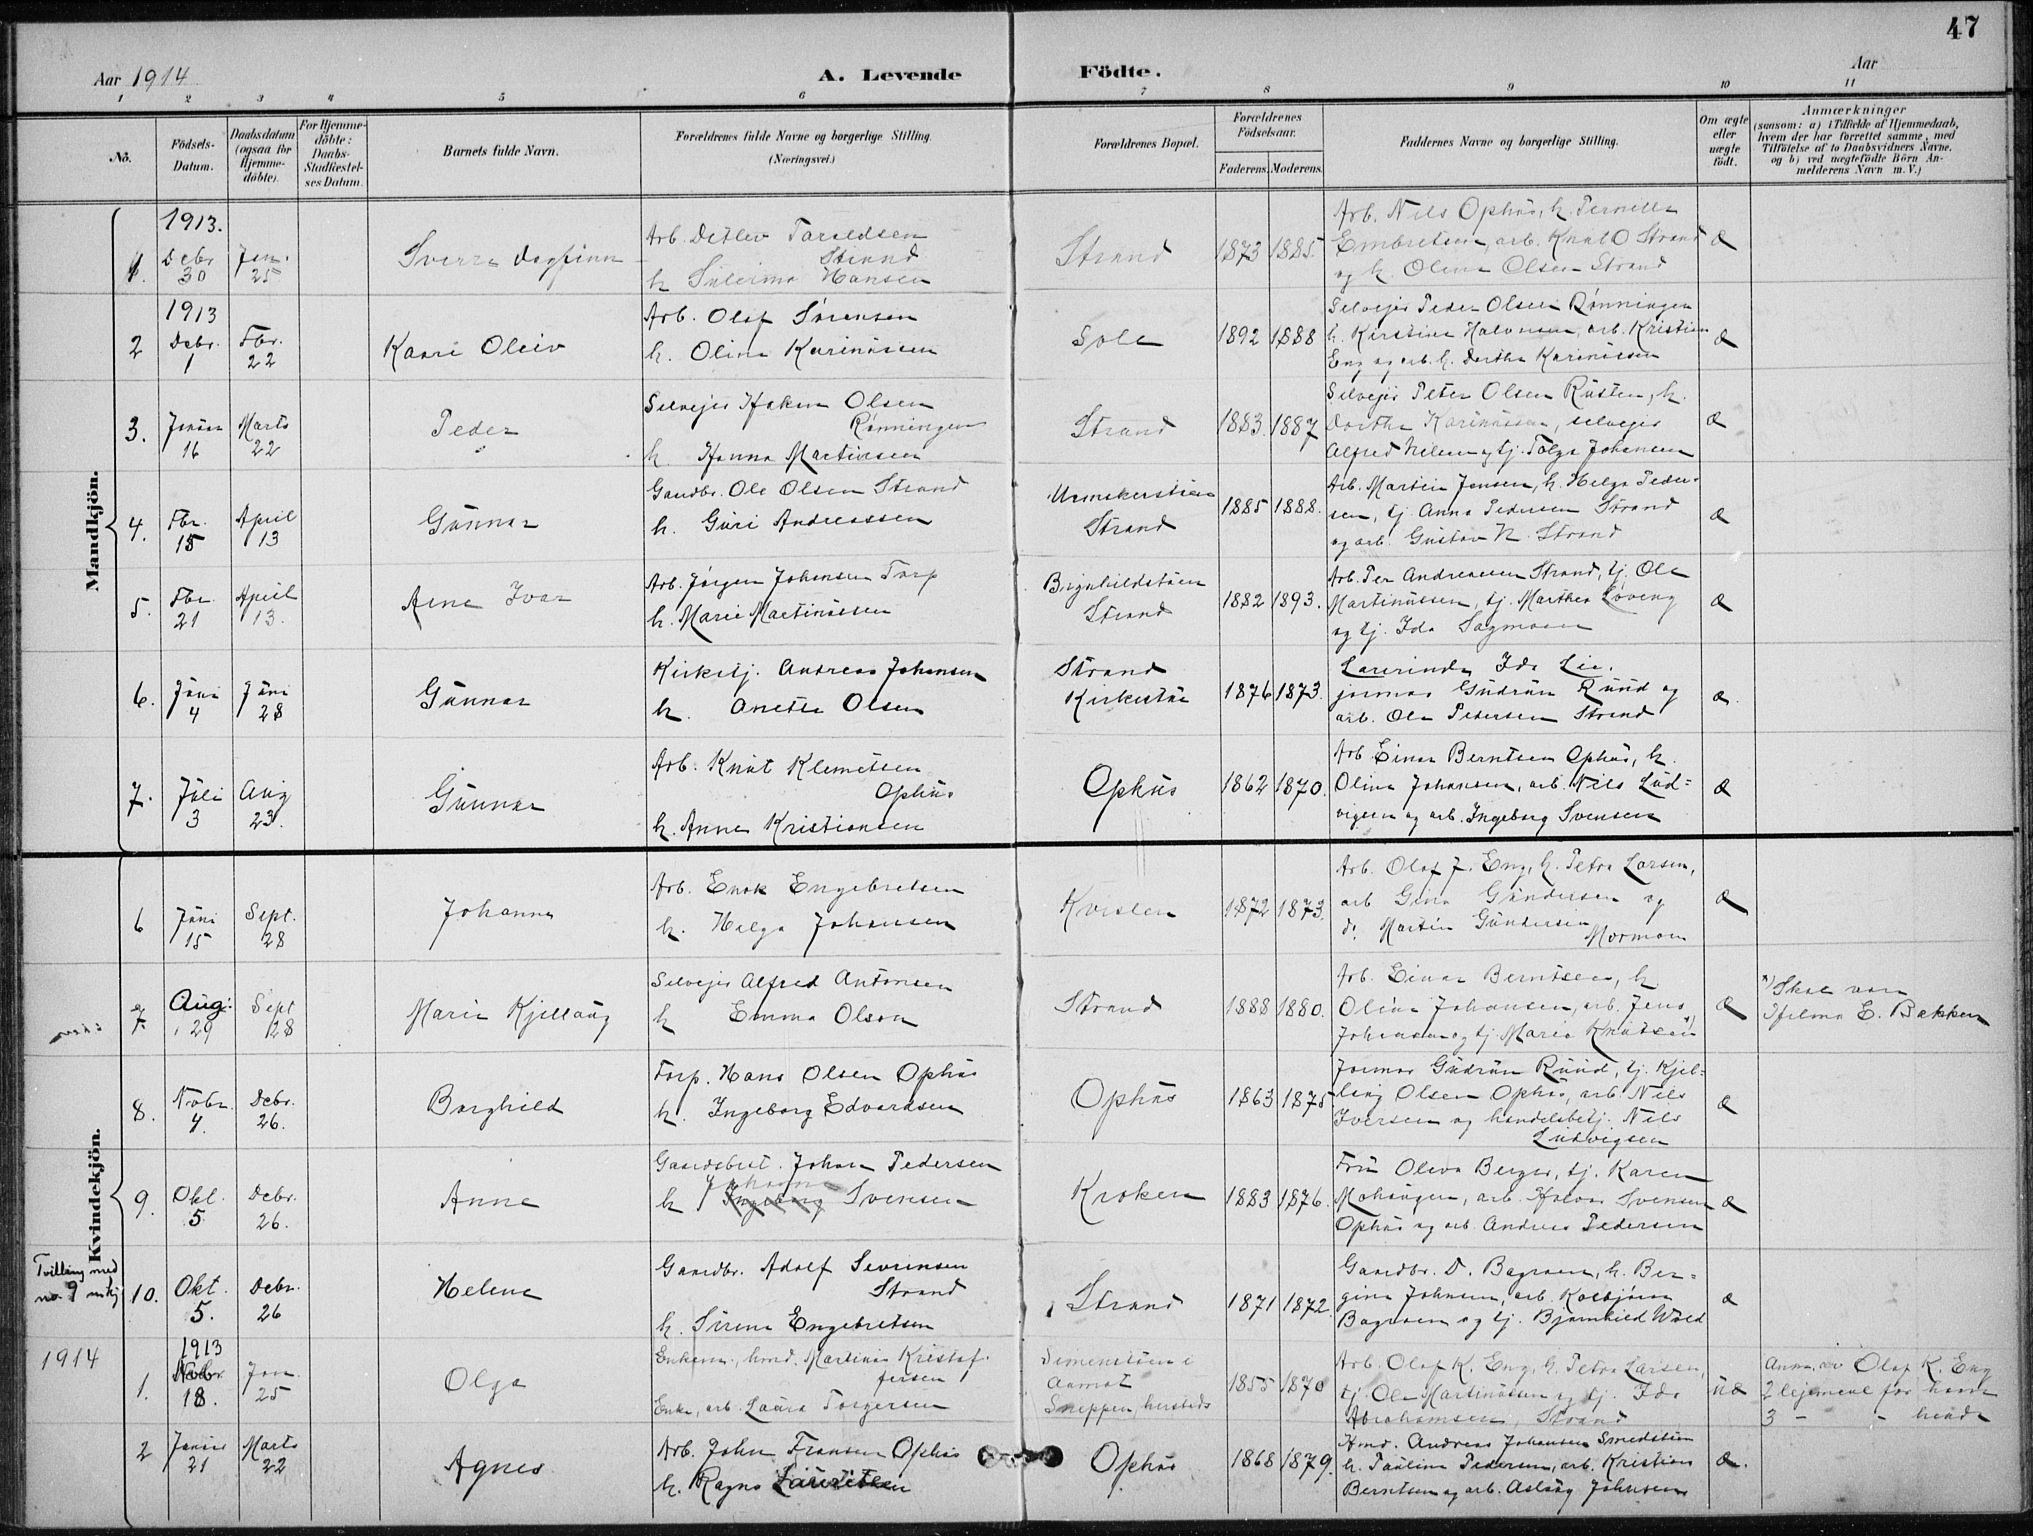 47
Aar 1914
A. Levende
Födte.
Aar
1 2 3 4 5 6 7 8 9 10 11
No.
Födsels-Datum.
Daabsdatum (ogsaa for Hjemme-döbte).
For Hjemme-döbte: Daabs-Stadfæstel-ses Datum.
Barnets fulde Navn.
Forældrenes fulde Navne og borgerlige Stilling.
(Næringsvei.)
Forældrenes Bopæl.
Forældrenes Födselsaar.
Faderens.
Moderens.
Faddernes Navne og borgerlige Stilling.
Om ægte eller uægte födt.
Anmærkninger
(saasom: a) i Tilfælde af Hjemmedaab,
hvem der har forrettet samme, med
Tilföielse af to Daabsvidners Navne,
og b) ved uægtefödte Börn An-
melderens Navn m. V.)
Mandkjön.
1913.
1. Debr. 30 Jan. 25 Sverre Dagfinn
Arb. Detlev Taraldsen
Strand
h. Hansen
Strand 1873 1885.
Arb. Nils Ophus, h. Pernille
Embretsen, arb. Knut O Strand
og h. Oline Olsen Strand
æ
1913
2 Debr. 1 Fbr. 22 Kaare Oleiv
Arb. Olaf Sørensen
h. Oline Karinussen
Sole 1892 1888
Selvejer Peder Olsen Rønningen
h. Kirstine Halvorsen, arb. Kristian
Eng og arb. h. Dorthe Karinussen
æ
3. Januar 16 Marts 22 Peder
Selvejer Haken Olsen
Rønningen
h. Hanna Martinesen
Strand 1883. 1887
Selvejer Peter Olsen Rusten, h.
Dorthe Karinussen, selvejer
Alfred Nilsen og tj. Tolga Johansen
æ
4. Fbr. 15 April 13 Gunnar
Gaardbr. Ole Olsen Strand
h. Guri Andreassen
Strand 1885 1888.
Arb. Martin Jensen, h. Helga Peder-
sen, tj Anna Pedersen Strand
og arb. Gustav N. Strand
æ
5. Fbr. 21 April 13. Arne Ivar
Arb. Jørgen Johansen Torp
h. Marie Martinussen
Brynhildstøen
Strand 1882 1893.
Arb. Per Andreassen Strand, tj. Ole
Martinussen, tj. Marthea Løveng
og tj. Ida Sagmoen
æ
6. Juni 4 Juni 28 Gunnar
Kirketj. Andreas Johansen
h. Anette Olsen
Strand
Kirkestue 1876 1873.
Lærerinde Ida Lie.
jormor Gudrun Ruud og
arb. Ole Pedersen Strand
æ.
7. Juli 3 Aug 23. Gunnar
Arb. Knut Klemetsen
Ophus
h. Anne Kristiansen
Ophus 1862 1870.
Arb Einar Berntsen Ophus, h.
Oline Johansen, arb. Nils Lud=
vigsen og arb. Ingeborg Svensen
æ
Kvindekjön.
6 Juni 15 Sept. 28 Johanne
Arb. Enok Engebretsen
h. Helga Johansen
Kvislen 1872 1873.
Arb. Olaf J. Eng, h. Petra Larsen,
arb Gina Gundersen og
do Martin Gundersen
Mormoen
æ
7. Aug: 29 Sept 28 Marie Kjellaug
Selvejer Alfred Antonsen
h Emma Olsen
Strand 1888 1880.
Arb. Einar Berntsen, h
Oline Johansen, arb. Jens
Johansen og tj. Marie Knutsen*)
æ
*) Skal være
Hilma E. Bakken
8. Nobr. 4. Debr. 26. Borghild
Forp. Hans Olsen Ophus
h. Ingeborg Edvardsen
Ophus 1863 1875
Jormor Gudrun Ruud, tj. Kjel=
laug Olsen Ophus, arb. Nils
Iversen og handelsbetj. Nils
Ludvigsen
æ
9. Okt. 5 Debr. 26. Anne
Gaardsbest. Johan Pedersen
Johanne
h Ingeborg Svensen
Kroken 1883 1876.
Fru Oleva Berger, tj. Karen
Mohaugen, arb. Halvor Svensen
Ophus og arb. Andreas Pedersen
æ
Tvilling med
no. 9 mkj
10. Okt. 5. Debr. 26 Helene
Gaardbr. Adolf Severinsen
Strand
h. Sirene Engebretsen
Strand 1871 1872.
Gaardbr. D. Bagroen, h. Ber=
gine Johnsen, arb. Kolbjørn
Bagroen og tj. Bjørnhild Wold
æ
1914
1913
1. Nobr. 18. Jan. 25 Olga
Enkem., hmd. Martinus Kristof-
fersen
Enke, arb. Laura Torgersen
Simenstuen i
Aamot
Sneppen, hersteds 1855 1870
Arb. Olaf K. Eng, h. Petra Larsen,
tj. Ole Martinussen og tj. Ida
Abrahamsen, Strand
uæ
Anm. av Olaf K. Eng
2 lejemaal for ham
3 – – hende
2 Januar 21 Marts 22 Agnes
Arb. John Fransen Ophus
h. Ragna Lauritsen
Ophus 1868 1879.
Hmd. Andreas Johansen Smedstuen
h. Pauline Pedersen, arb. Kristian
Berntsen og arb. Aslaug Johnsen
æ.